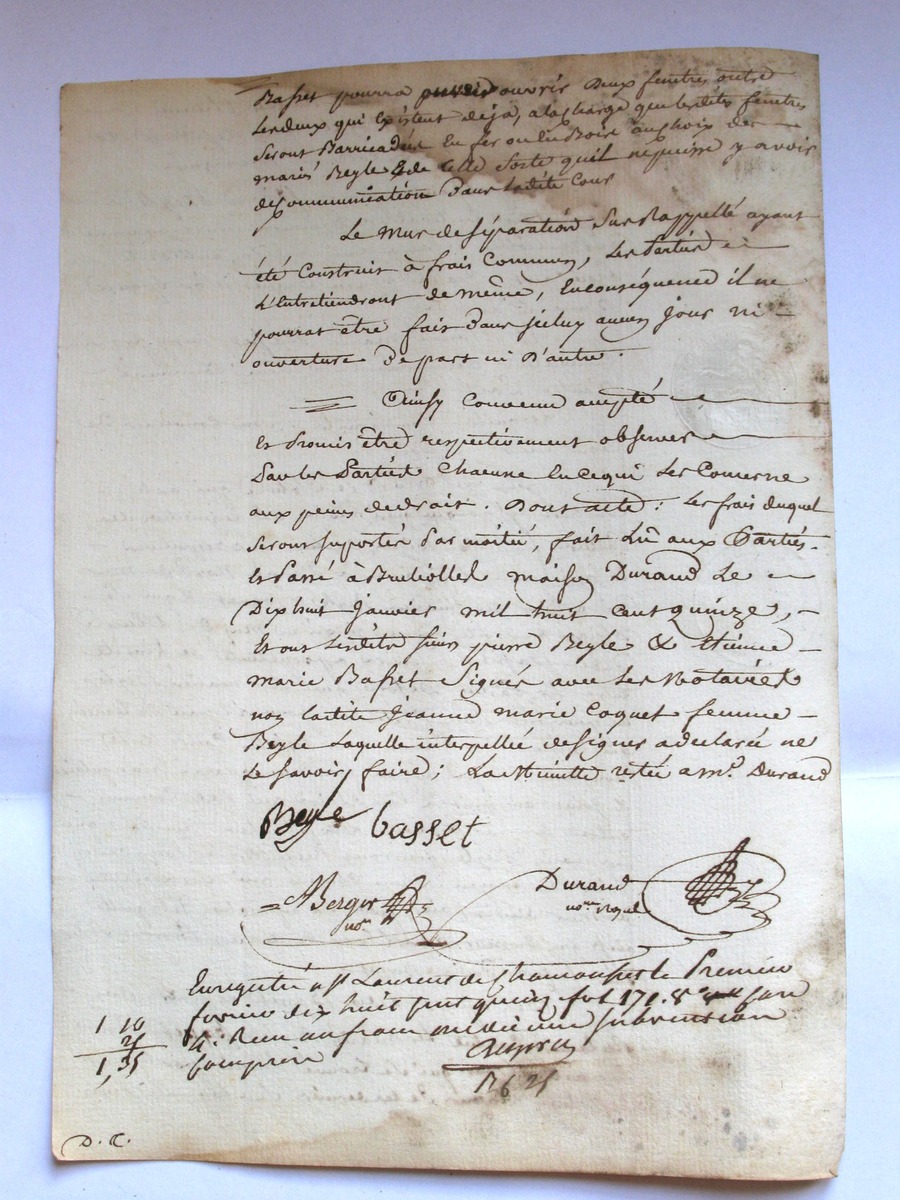 Basset pourra ouvrir Deux fenetres outre
Les deux qui Existent deja, a la charge que lesdites fenetres
Seront Barricadées En fer ou En Bois au choix des
mariés Beyle & de telle Sorte quil ne puisse y avoir
de Communication Dans Ladite Cour
Le Mur de séparation Sus Rappellé ayant
été Construit à frais Communs, Les Parties
L'Entretiendront de même, En conséquence il ne
pourra être fait Dans Jceluy aucun Jour ni
ouverture De part ni D'autre.
Ainsy Convenu accepté
Et Promis être respectivement observer
Par les Parties Chacune En ce qui Les Concerne
aux peines de droit. Dont acte: Les frais duquel
Seront suportés Par moitié, fait Lû aux Parties
Et Passé à Brullioles maison Durand Le
Dix huit Janvier mil huit Cent quinze,
Et ont Lesdits pierre Beyle & Etienne
marie Basset Signés avec Les Notaires
non Ladite Jeanne marie Coquet femme
Beyle Laquelle interpellée de signer a declarée ne
Le savoir faire; La Minutte restée a Me. Durand
Beyle basset
Berger Durand
nore nore royal
Enregistré a St Laurent de Chamousset le Premier
fevrier dix huit cent quinze fol 171. R°
1 10 R: un franc dix Subvention
25 Comprise
1,35
R 6 25
D. C.